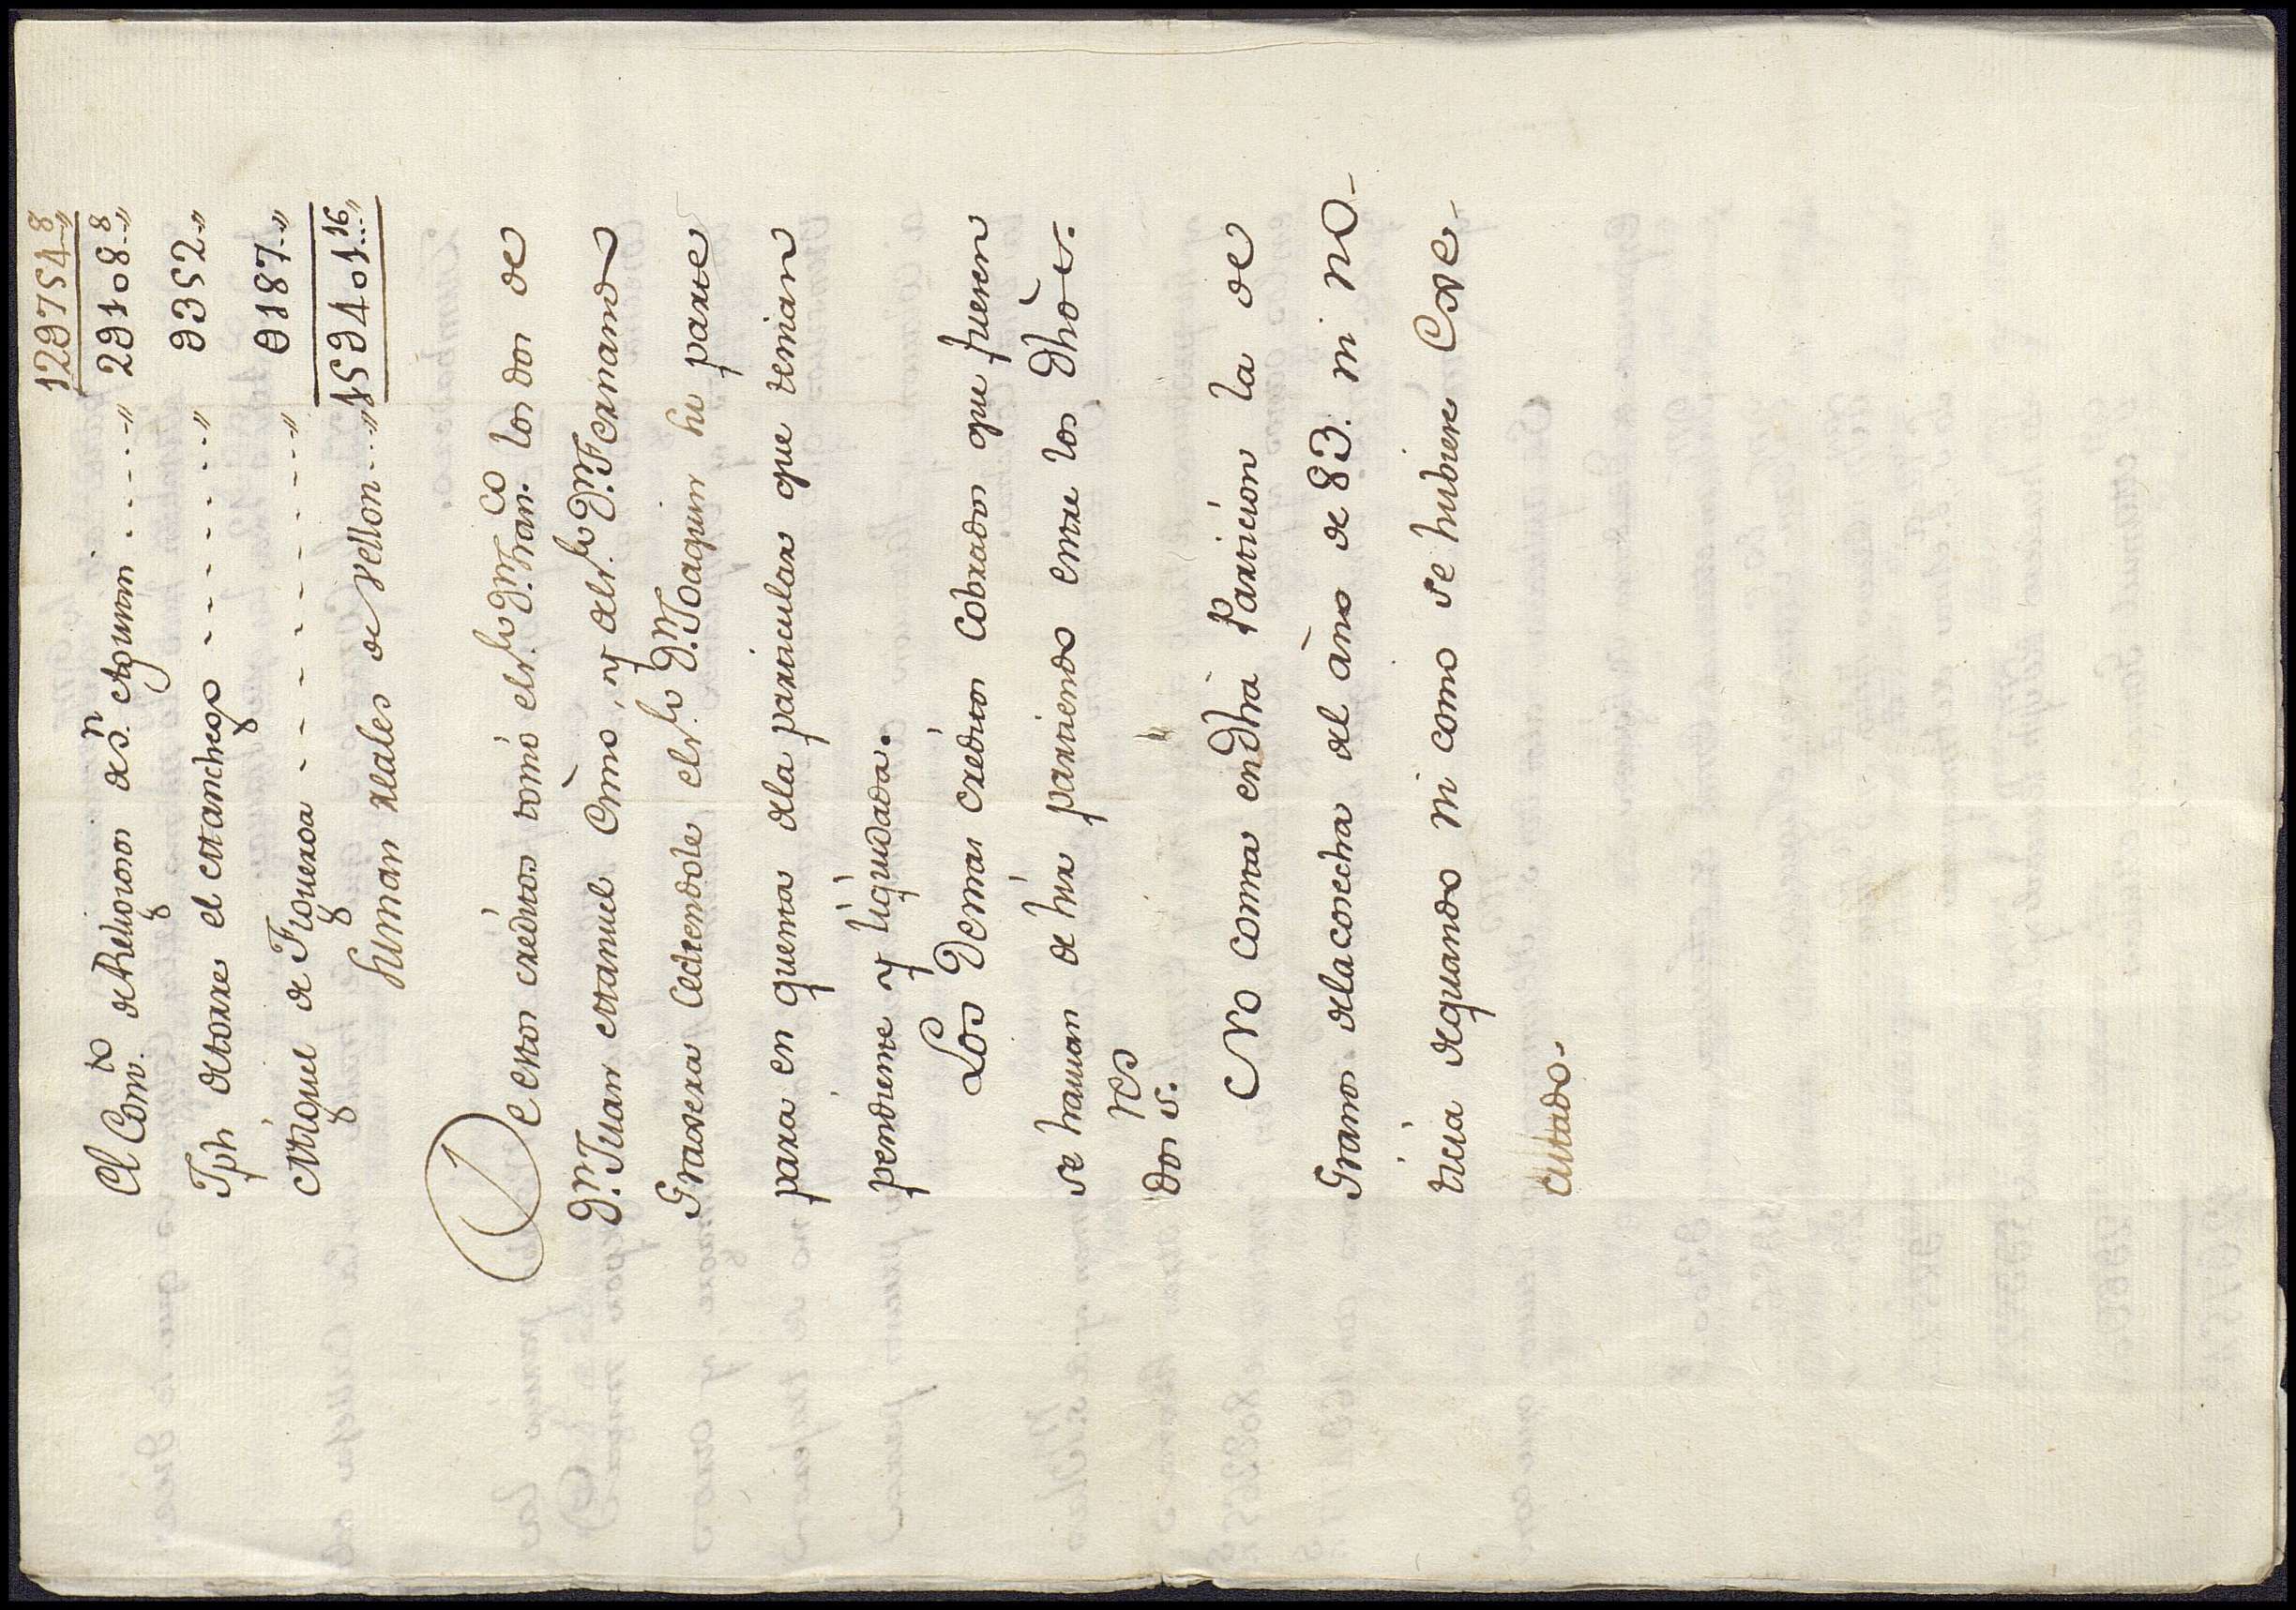 129754..8
El Conv.to de Religiosos de S.n Agustin ..... " 29108..8
Jph de torre el estanchego ....... " 9352.."
Miguel de Figueroa ....... " 9187.."
Suman reales de vellon ... " 159401..16
De estos creditos tomó el s.to D.n Fran.co los dos de
D.n Juan Manuel Olmo, y del s.to D.n Fernando
Gravera Cediendole el s.to D.n Joaquin su parte
para en quenta de la particular que tenian
pendiente y liquidada.
Los Demas creditos cobrados que fuesen
se havian de hir partiendo entre los Dhos
dos s.res
No consta en Dha Particion la de
Granos de la cosecha del año de 83. ni no-
ticia de quando ni como se hubiere Exe-
cutado.